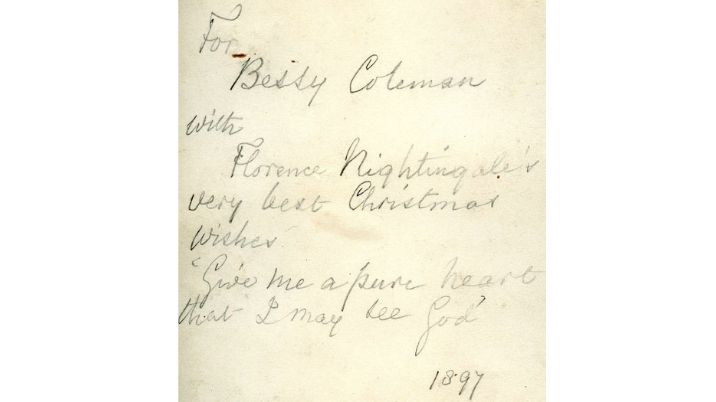 For
Bessy Coleman
with
Florence Nightingale's
very best Christmas
wishes
"Give me a pure heart
that I may see God"
1897